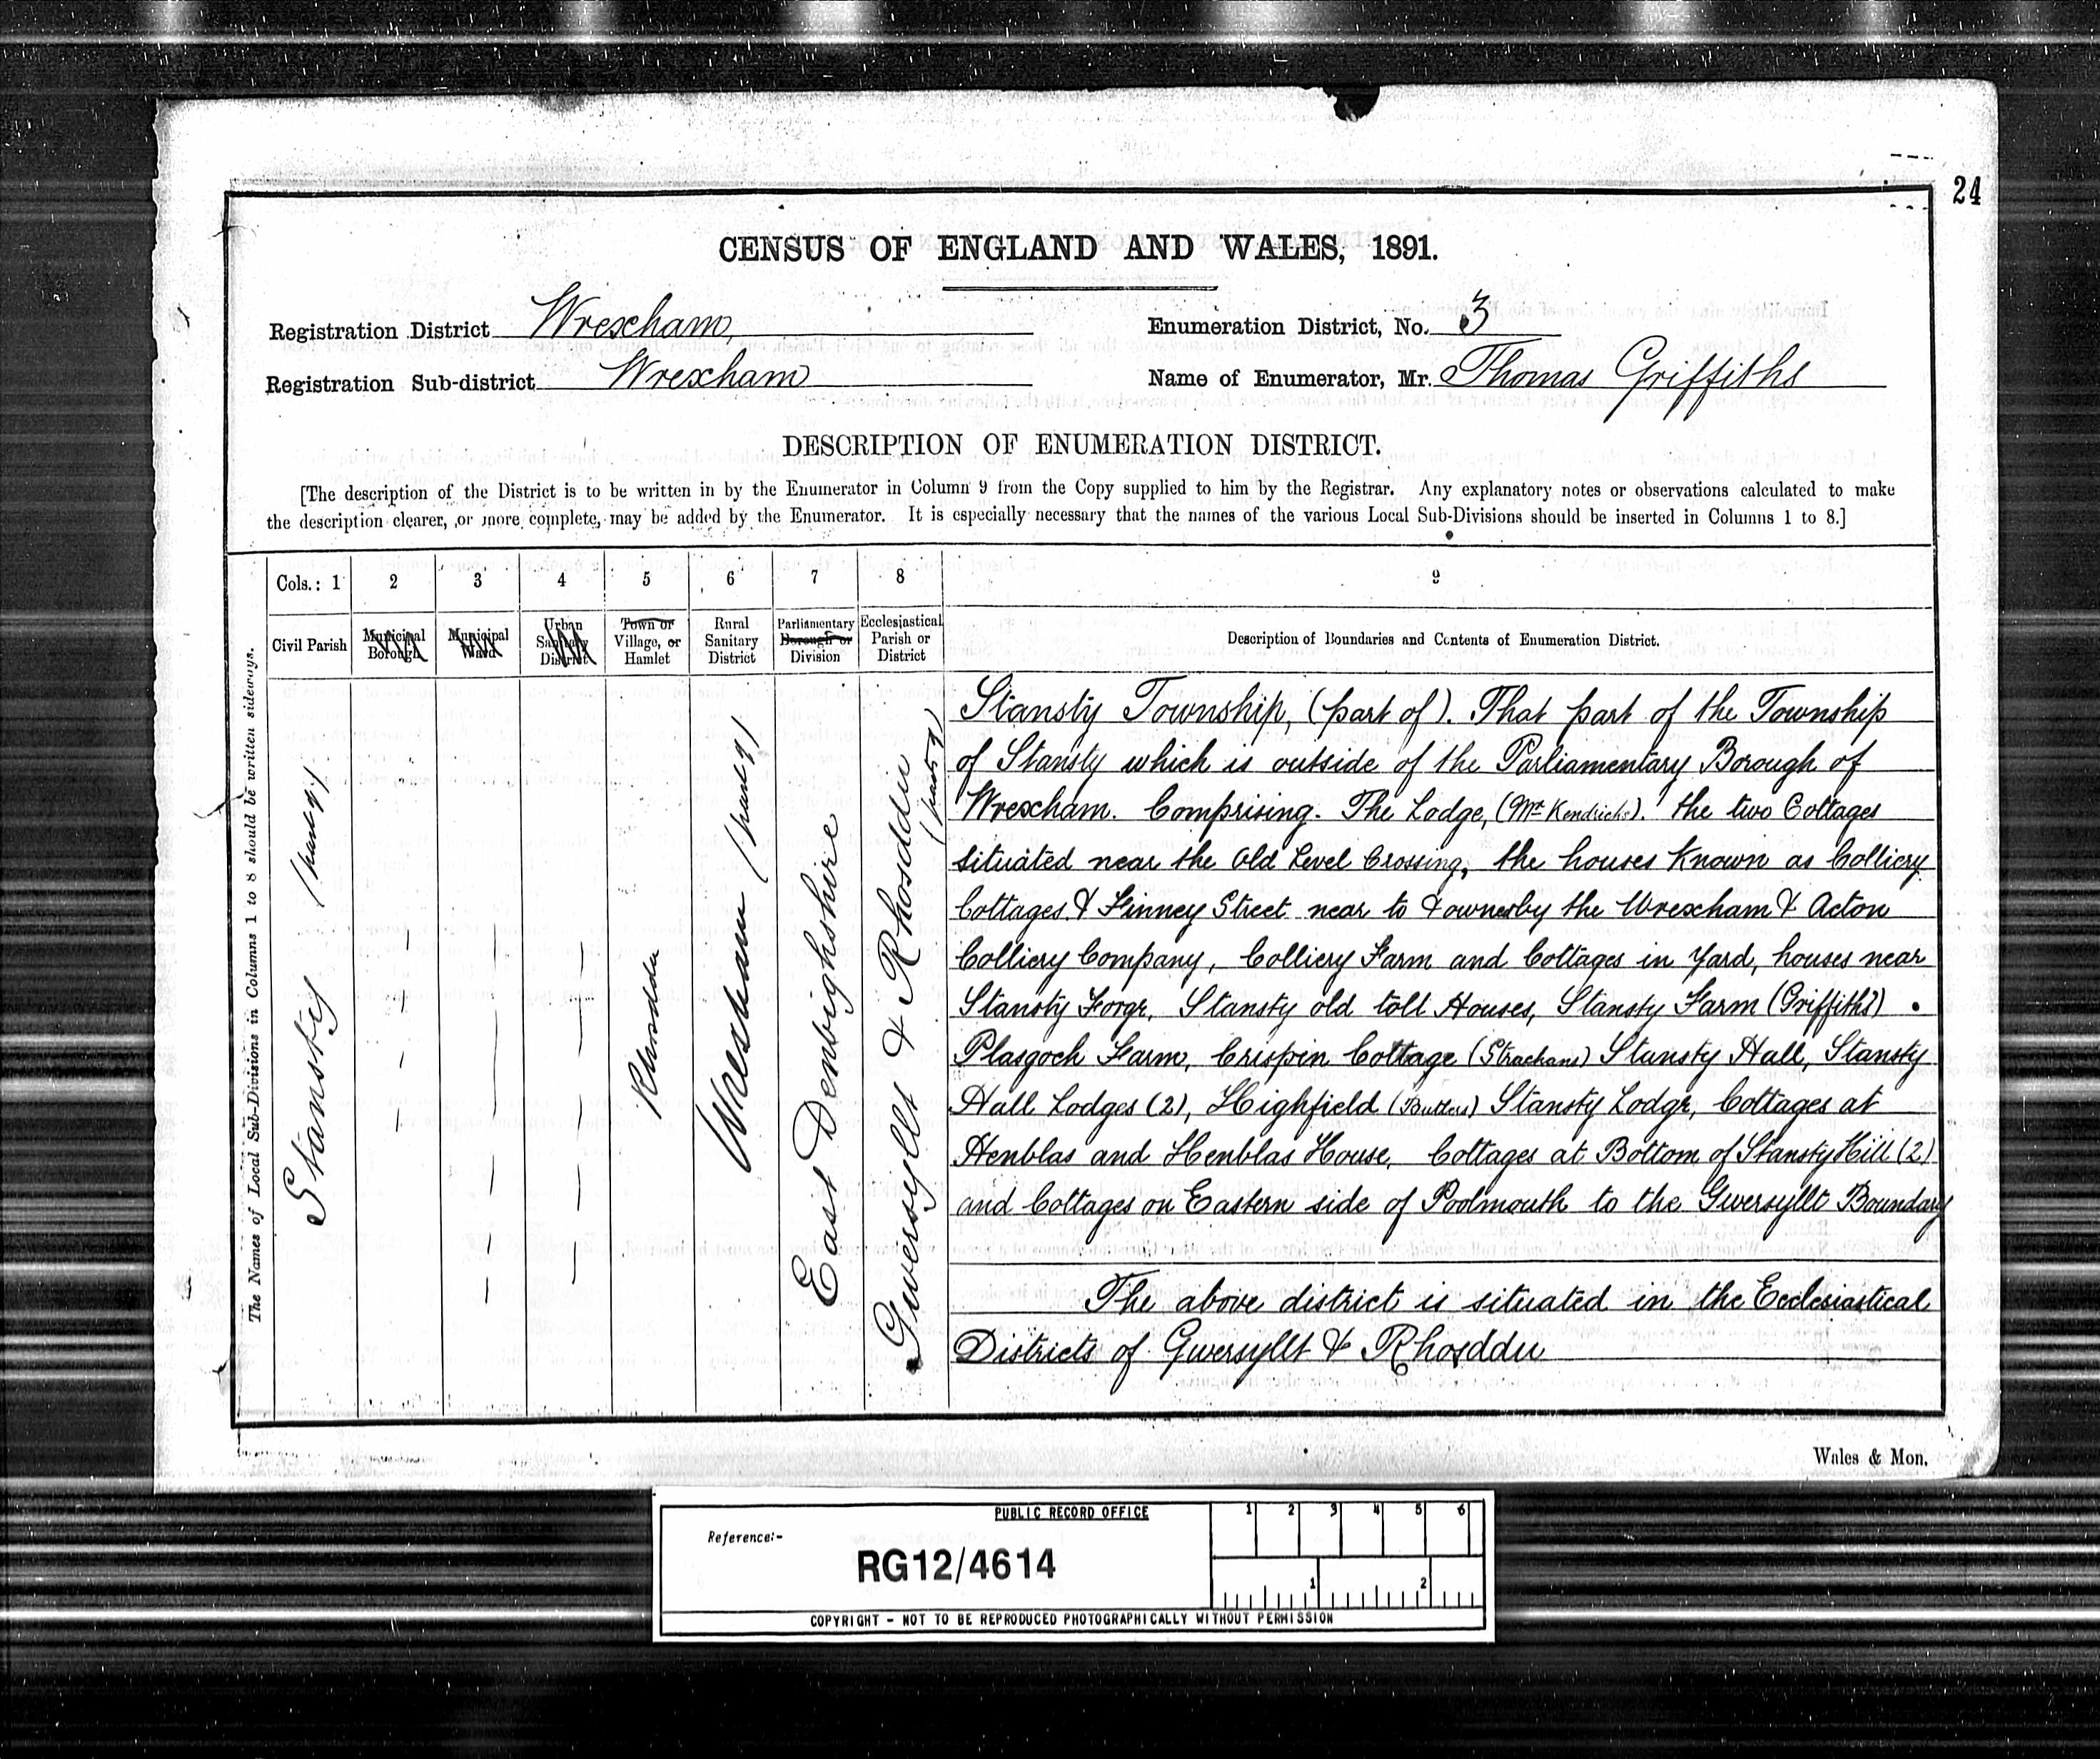 24
CENSUS OF ENGLAND AND WALES, 1891.
Registration District Wrexham
Enumeration District, No. 3
Registration Sub-district Wrexham
Name of Enumerator, Mr. Thomas Griffiths
DESCRIPTION OF ENUMERATION DISTRICT.
[The description of the District is to be written in by the Enumerator in Column 9 from the Copy supplied to him by the Registrar. Any explanatory notes or observations calculated to make
the description clearer, or more complete, may be added by the Enumerator. It is especially necessary that the names of the various Local Sub-Divisions should be inserted in Columns 1 to 8.]
The Names of Local Sub-Divisions in Columns 1 to 8 should be written sideways.
Cols.: 1 2 3 4 5 6 7 8 9
Civil Parish
Municipal Borough
Municipal Ward
Urban Sanitary District
Town or Village, or Hamlet
Rural Sanitary District
Parliamentary Borough or Division
Ecclesiastical Parish or District
Description of Boundaries and Contents of Enumeration District.
Stansty (part of)
Rhosddu
Wrexham (part of)
East Denbighshire
Gwersyllt & Rhosddu (part of)
Stansty Township, (part of). That part of the Township
of Stansty which is outside of the Parliamentary Borough of
Wrexham. Comprising. The Lodge, (Mr Kendricks). the two Cottages
situated near the Old Level Crossing, the houses known as Colliery
Cottages & Finney Street near to & owned by the Wrexham & Acton
Colliery Company, Colliery Farm and Cottages in Yard, houses near
Stansty Forge, Stansty old toll Houses, Stansty Farm (Griffiths)
Plasgoch Farm, Crispin Cottage (Strachans) Stansty Hall, Stansty
Hall Lodges (2), Highfield (Butlers) Stansty Lodge, Cottages at
Henblas and Henblas House, Cottages at Bottom of Stansty Hill (2)
and Cottages on Eastern side of Poolmouth to the Gwersyllt Boundary
The above district is situated in the Ecclesiastical
Districts of Gwersyllt & Rhosddu
Wales & Mon.
PUBLIC RECORD OFFICE
Reference:-
RG12/4614
1 2 3 4 5 6
1 2
COPYRIGHT - NOT TO BE REPRODUCED PHOTOGRAPHICALLY WITHOUT PERMISSION